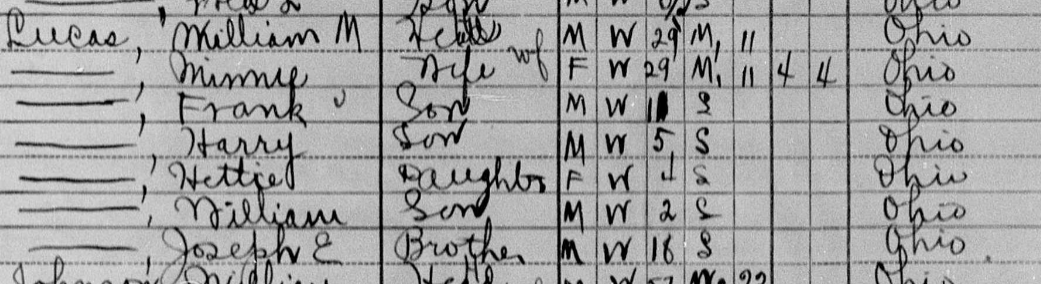 Lucas, William M Head M W 29 M1 11 Ohio
——, Minnie Wife wf F W 29 M1 11 4 4 Ohio
——, Frank Son M W S Ohio
——, Harry Son M W 5 S Ohio
——, Hettie Daughter F W 4 S Ohio
——, William Son M W 2 S Ohio
——, Joseph E Brother M W 16 S Ohio
Ohio